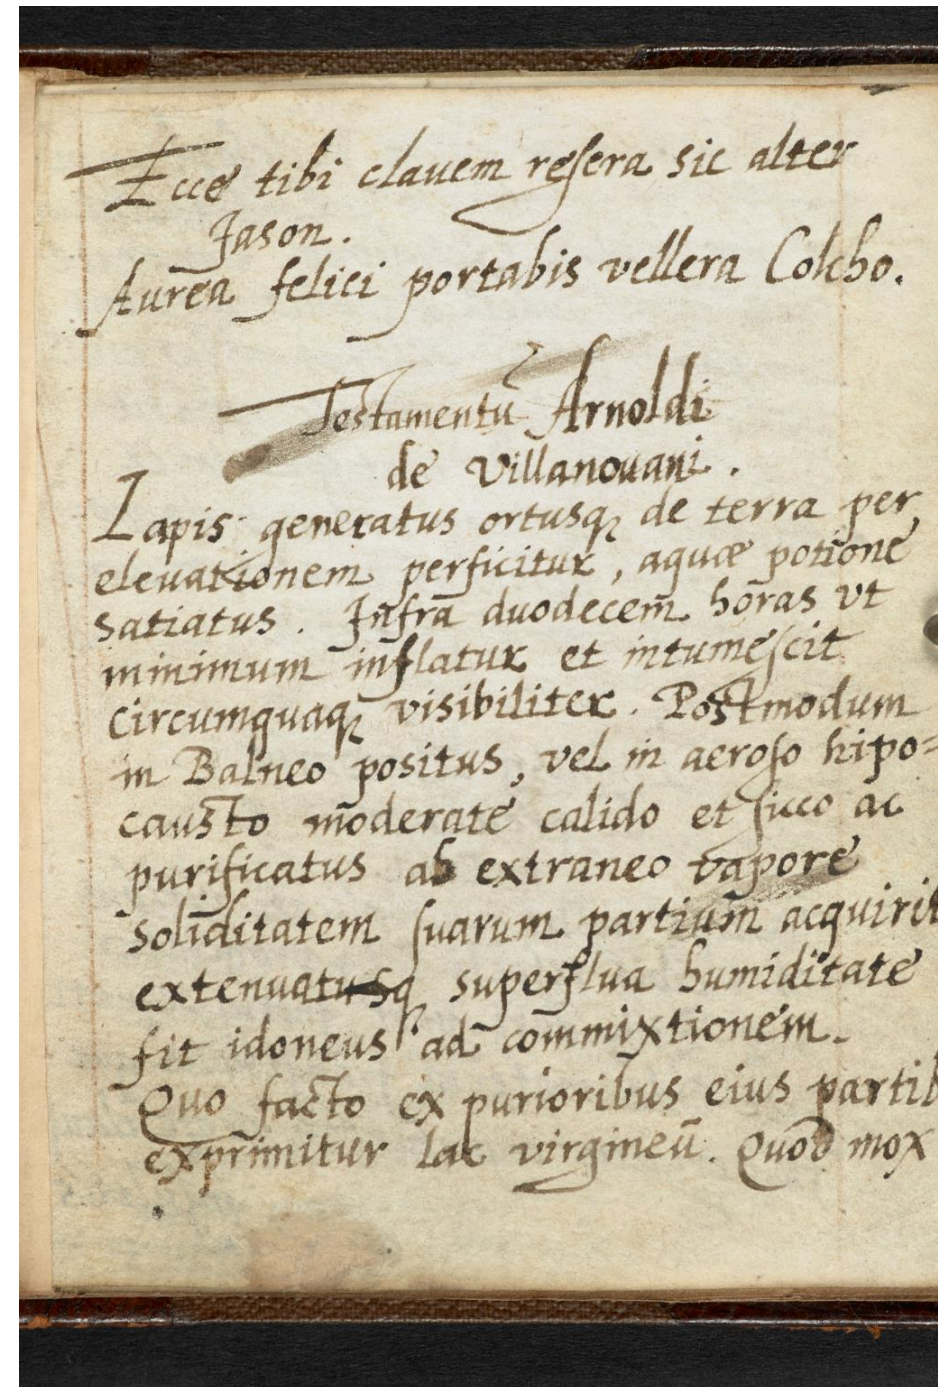 Ecce tibi clauem resera sic alter
Jason.
Aurea felici portabis vellera Colcho.
Testamentū Arnoldi
de Villanouani.
Lapis generatus ortusq̨ de terra per
eleuationem perficitur, aquæ potione
satiatus. Infra duodecem horas vt
minimum inflatur et intumescit
circumquaq̨ visibiliter. Postmodum
in Balneo positus, vel in aeroso hipo=
causto moderate calido et sicco ac
purificatus ab extraneo vapore
soliditatem suarum partium acquirit
extenuatusq̨ superflua humiditate
fit idoneus ad commixtionem.
Quo facto ex purioribus eius partib
exprimitur lac virgineū. Quod mox